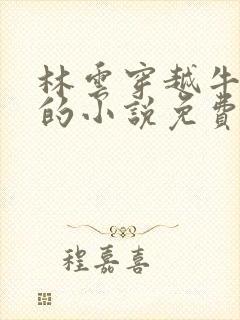 林雲穿越牛
的小說免費
程嘉喜